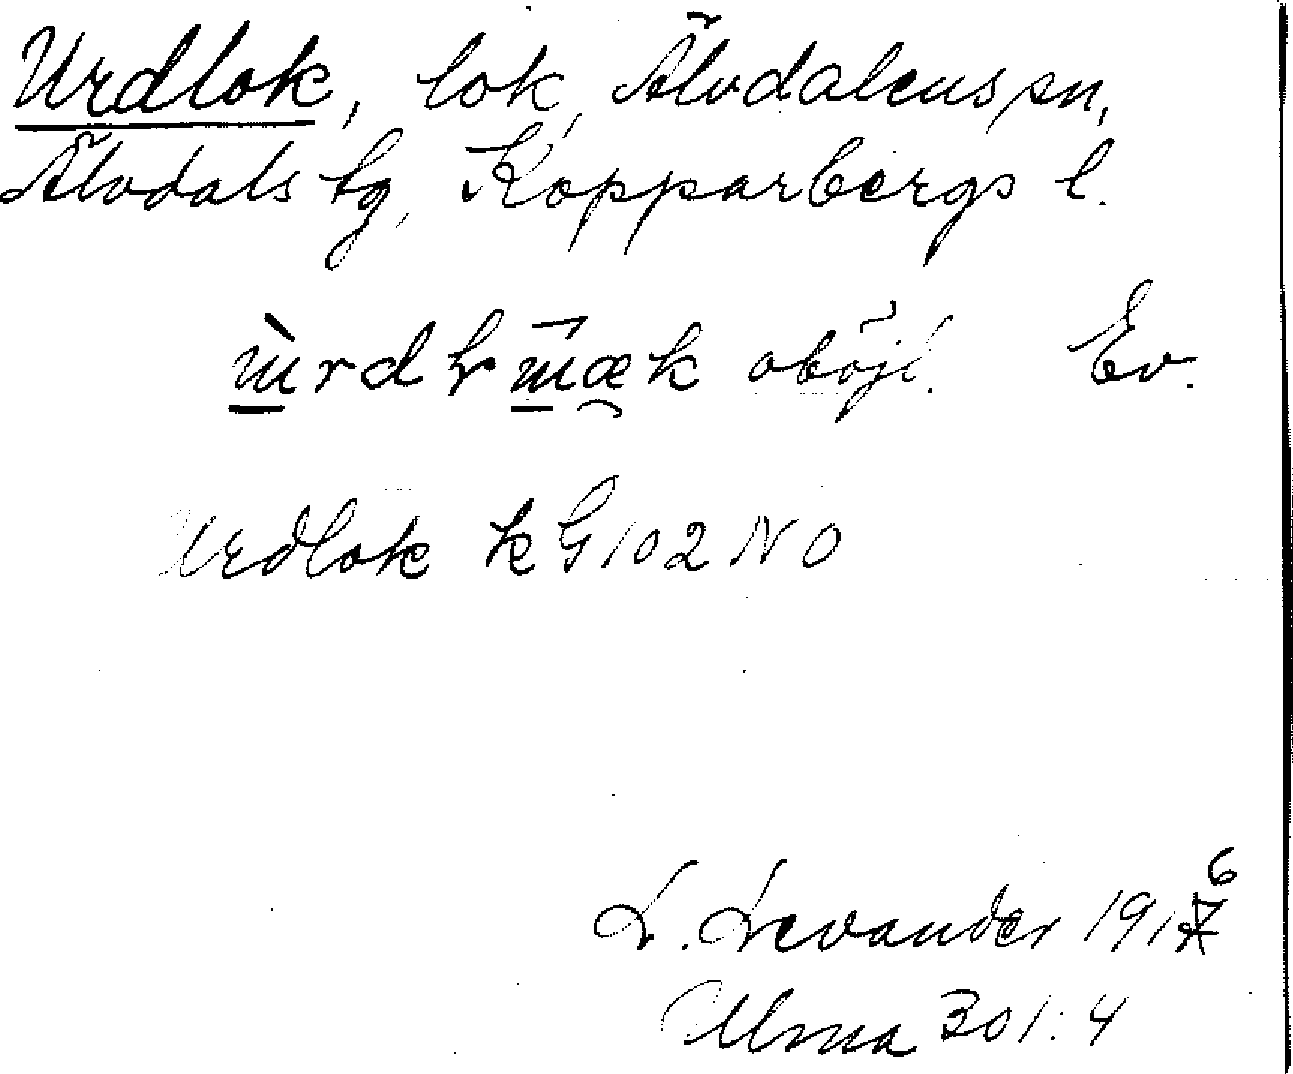 Urdlok, lok, Älvdalens sn,
Älvdals tg, Kopparbergs l.
oböjl. Ev.
Urdlok k G 102 NO
L. Levander 1916
Ulma 301:4